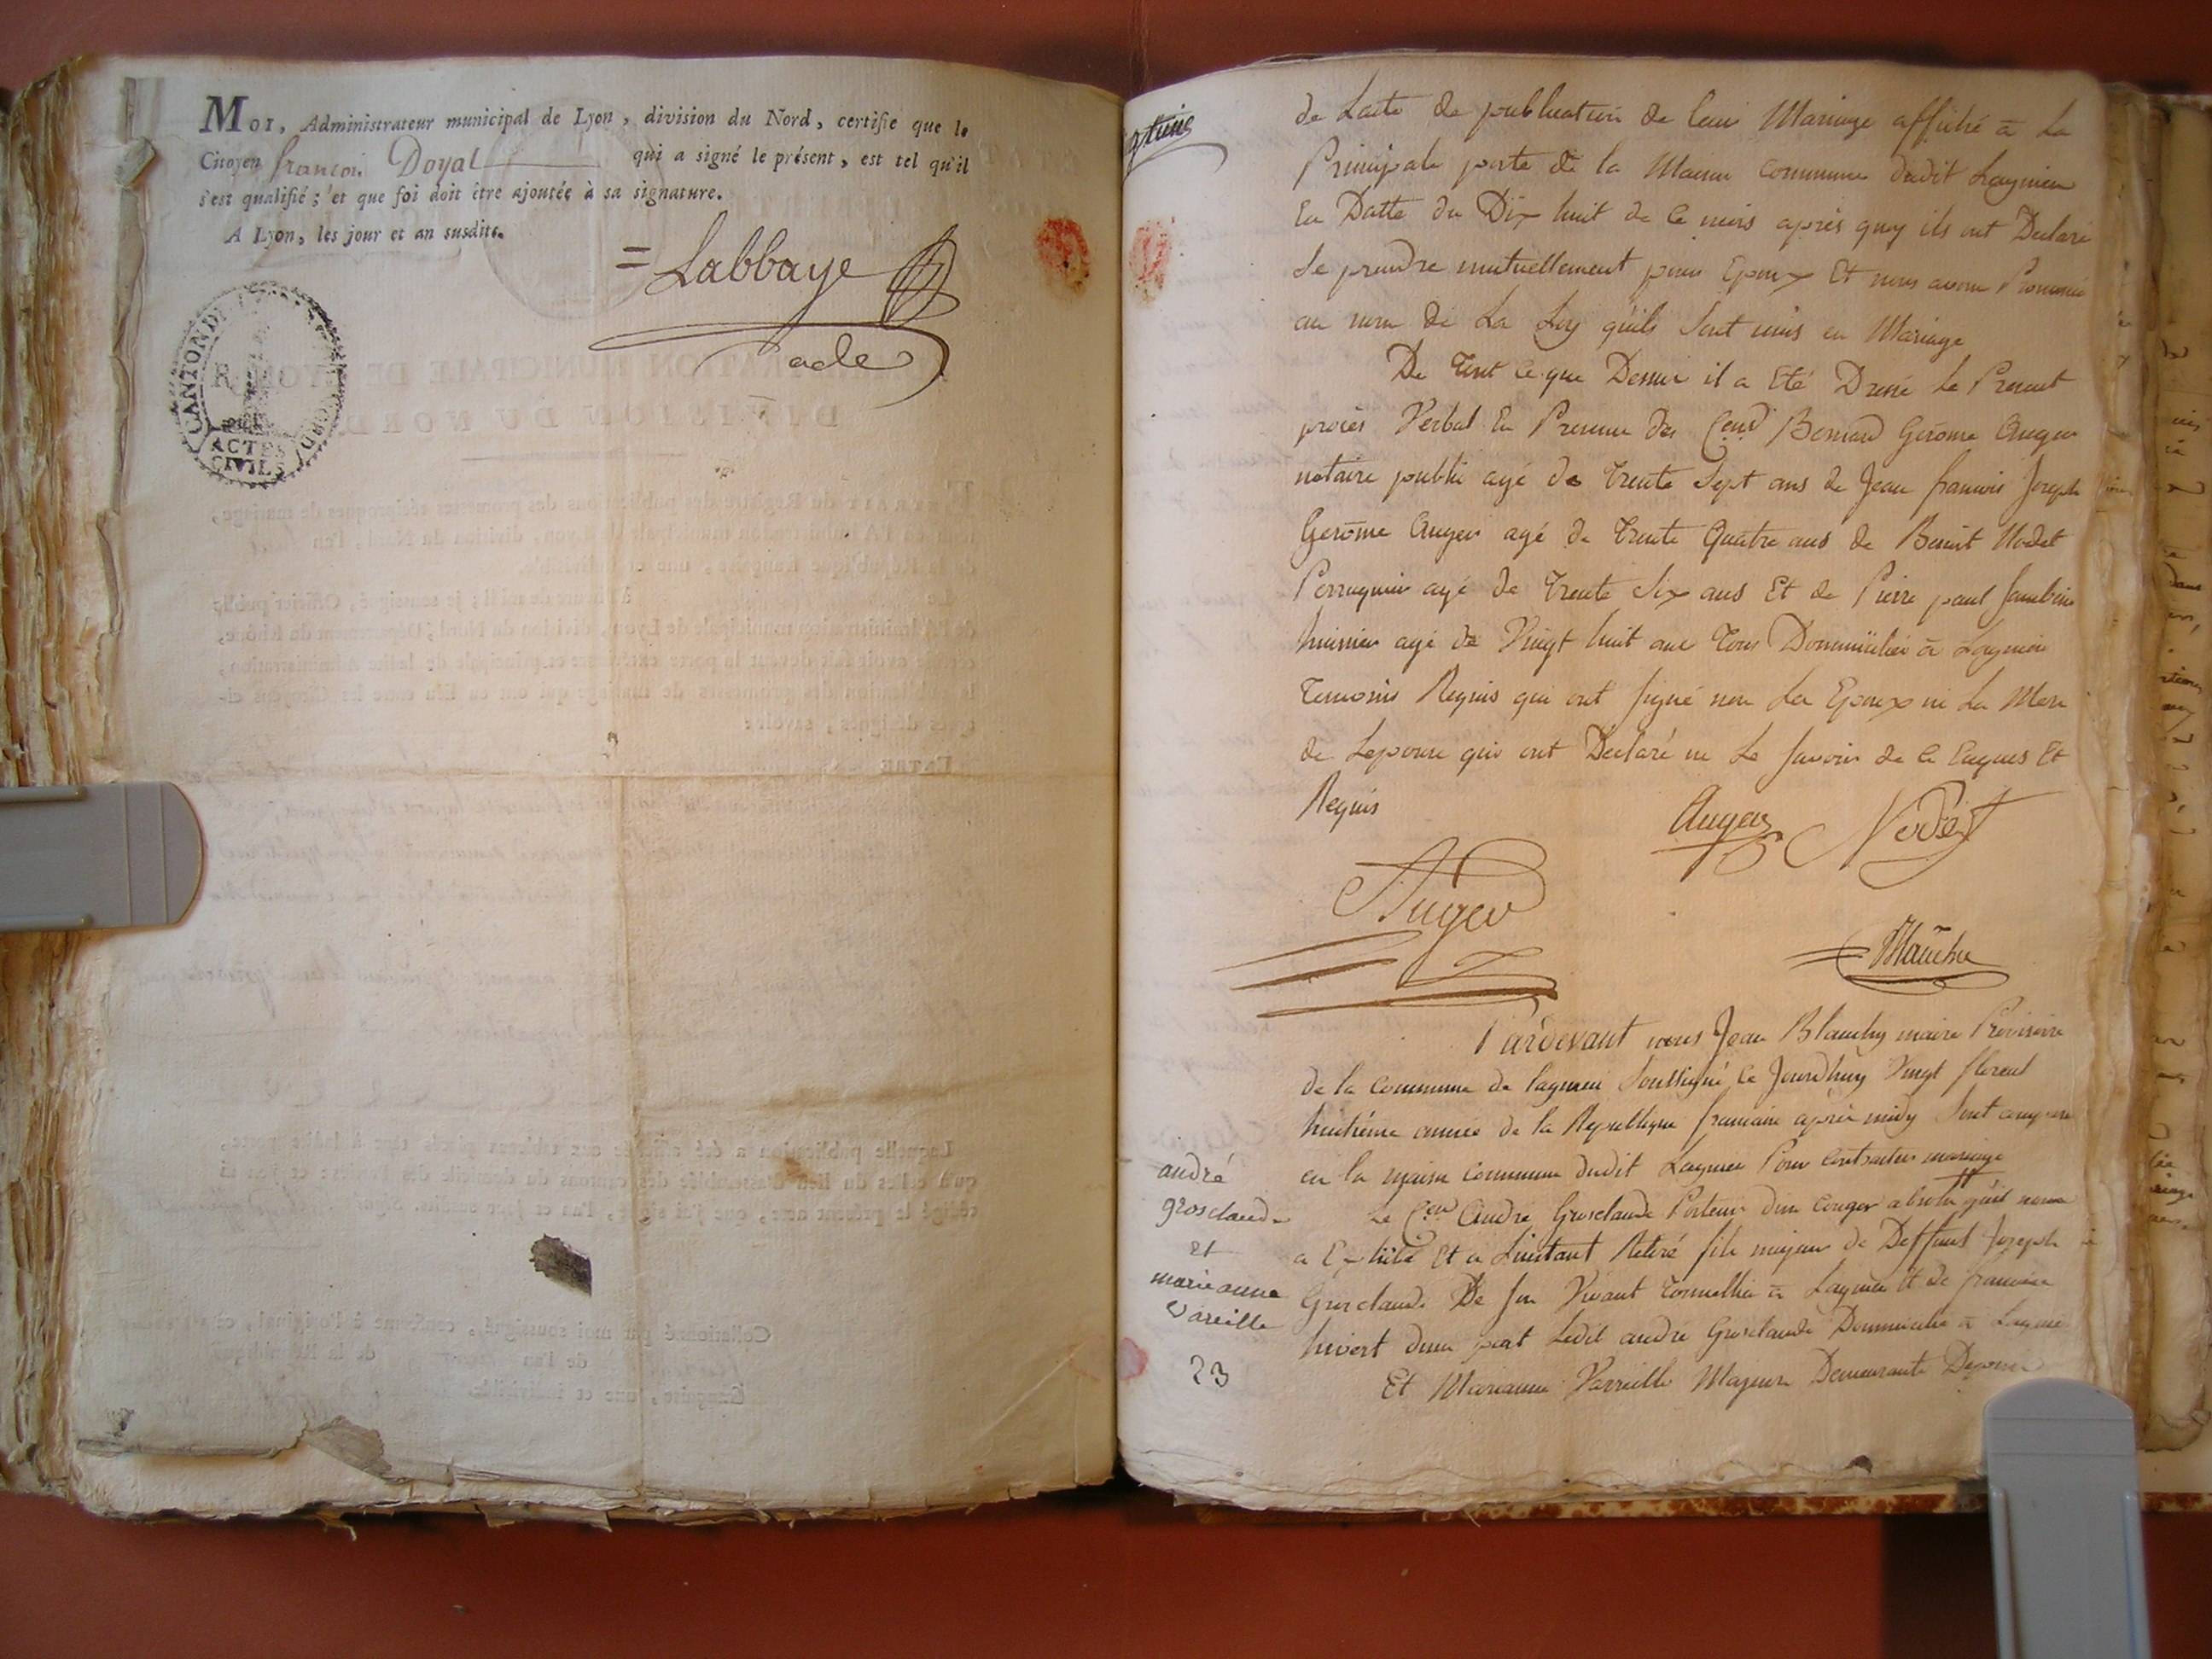 Moi, Administrateur municipal de Lyon, division du Nord, certifie que le
Citoyen françoi Doyal qui a signé le présent, est tel qu'il
s'est qualifié; et que foi doit être ajoutée à sa signature.
A Lyon, les jour et an susdits.
Labbaye
ade
CANTON DU NORD
ACTES
CIVILS
de Lacte de publication de leur Mariage affiché a La
Principale porte de la Maison Commune dudit Lagnieu
En Datte du Dix huit de Ce mois après quoy ils ont Declaré
Se prendre mutuellement pour Epoux Et nous avons Prononcé
au nom de La Loy quils Sont unis en Mariage
De Tout Ce que Dessus il a Eté Dressé Le Present
procès Verbal En Presence des Cens Bernard Gerome Auger
notaire public agé de Trente Sept ans de Jean francois Joseph
Gerôme Auger agé de Trente Quatre ans de Benoit Nodet
Perruquier agé de Trente Six ans Et de Pierre paul
huissier agé de Vingt huit ans Tous Domiciliés a Lagnieu
Temoins Requis qui ont Signé non Les Epoux ni La Mere
de Lepouse qui ont Declaré ne Le Savoir de Ce Enquis Et
Requis
Auger Nodet
Auger
Blanchy
Pardevant nous Jean Blanchy maire Provisoire
de la Commune de lagnieu Soussigné Ce Jourdhuy Vingt floreal
huitiéme année de la Republique francaise après midy Sont comparu
en la maison Commune dudit Lagnieu Pour Contracter mariage
Le Cen Andre Grosclaude Porteur d'un Conger absolut quil nous
a Exhibé Et a Linstant Retiré fils majeur de Deffunt Joseph
Grosclaude De Son Vivant Tonnellier a Lagnieu Et de francoise
hivert d'une part Ledit andre Grosclaude Domicilié a Lagnieu
Et Marianne Varreille Majeure Demeurante
andré
grosclaude
et
marieanne
Vareille
23